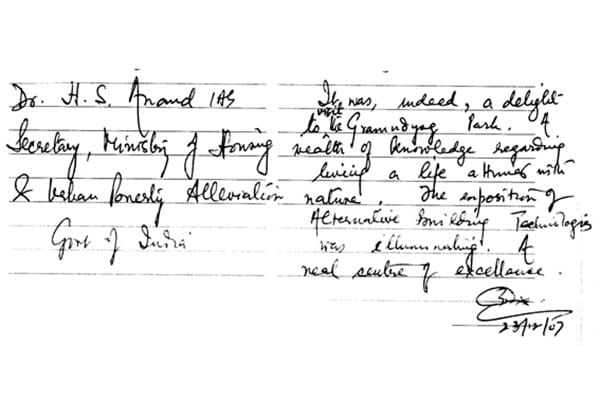 Dr. H. S. Anand IAS
Secretary, Ministry of Housing
& Urban Poverty Alleviation
Govt of India
It was, indeed, a delight
to visit the Gramudyog Park. A
wealth of knowledge regarding
living a life attuned with
nature. The exposition of
Alternative Building Technologies
was illuminating. A
real centre of excellence.
23/12/07